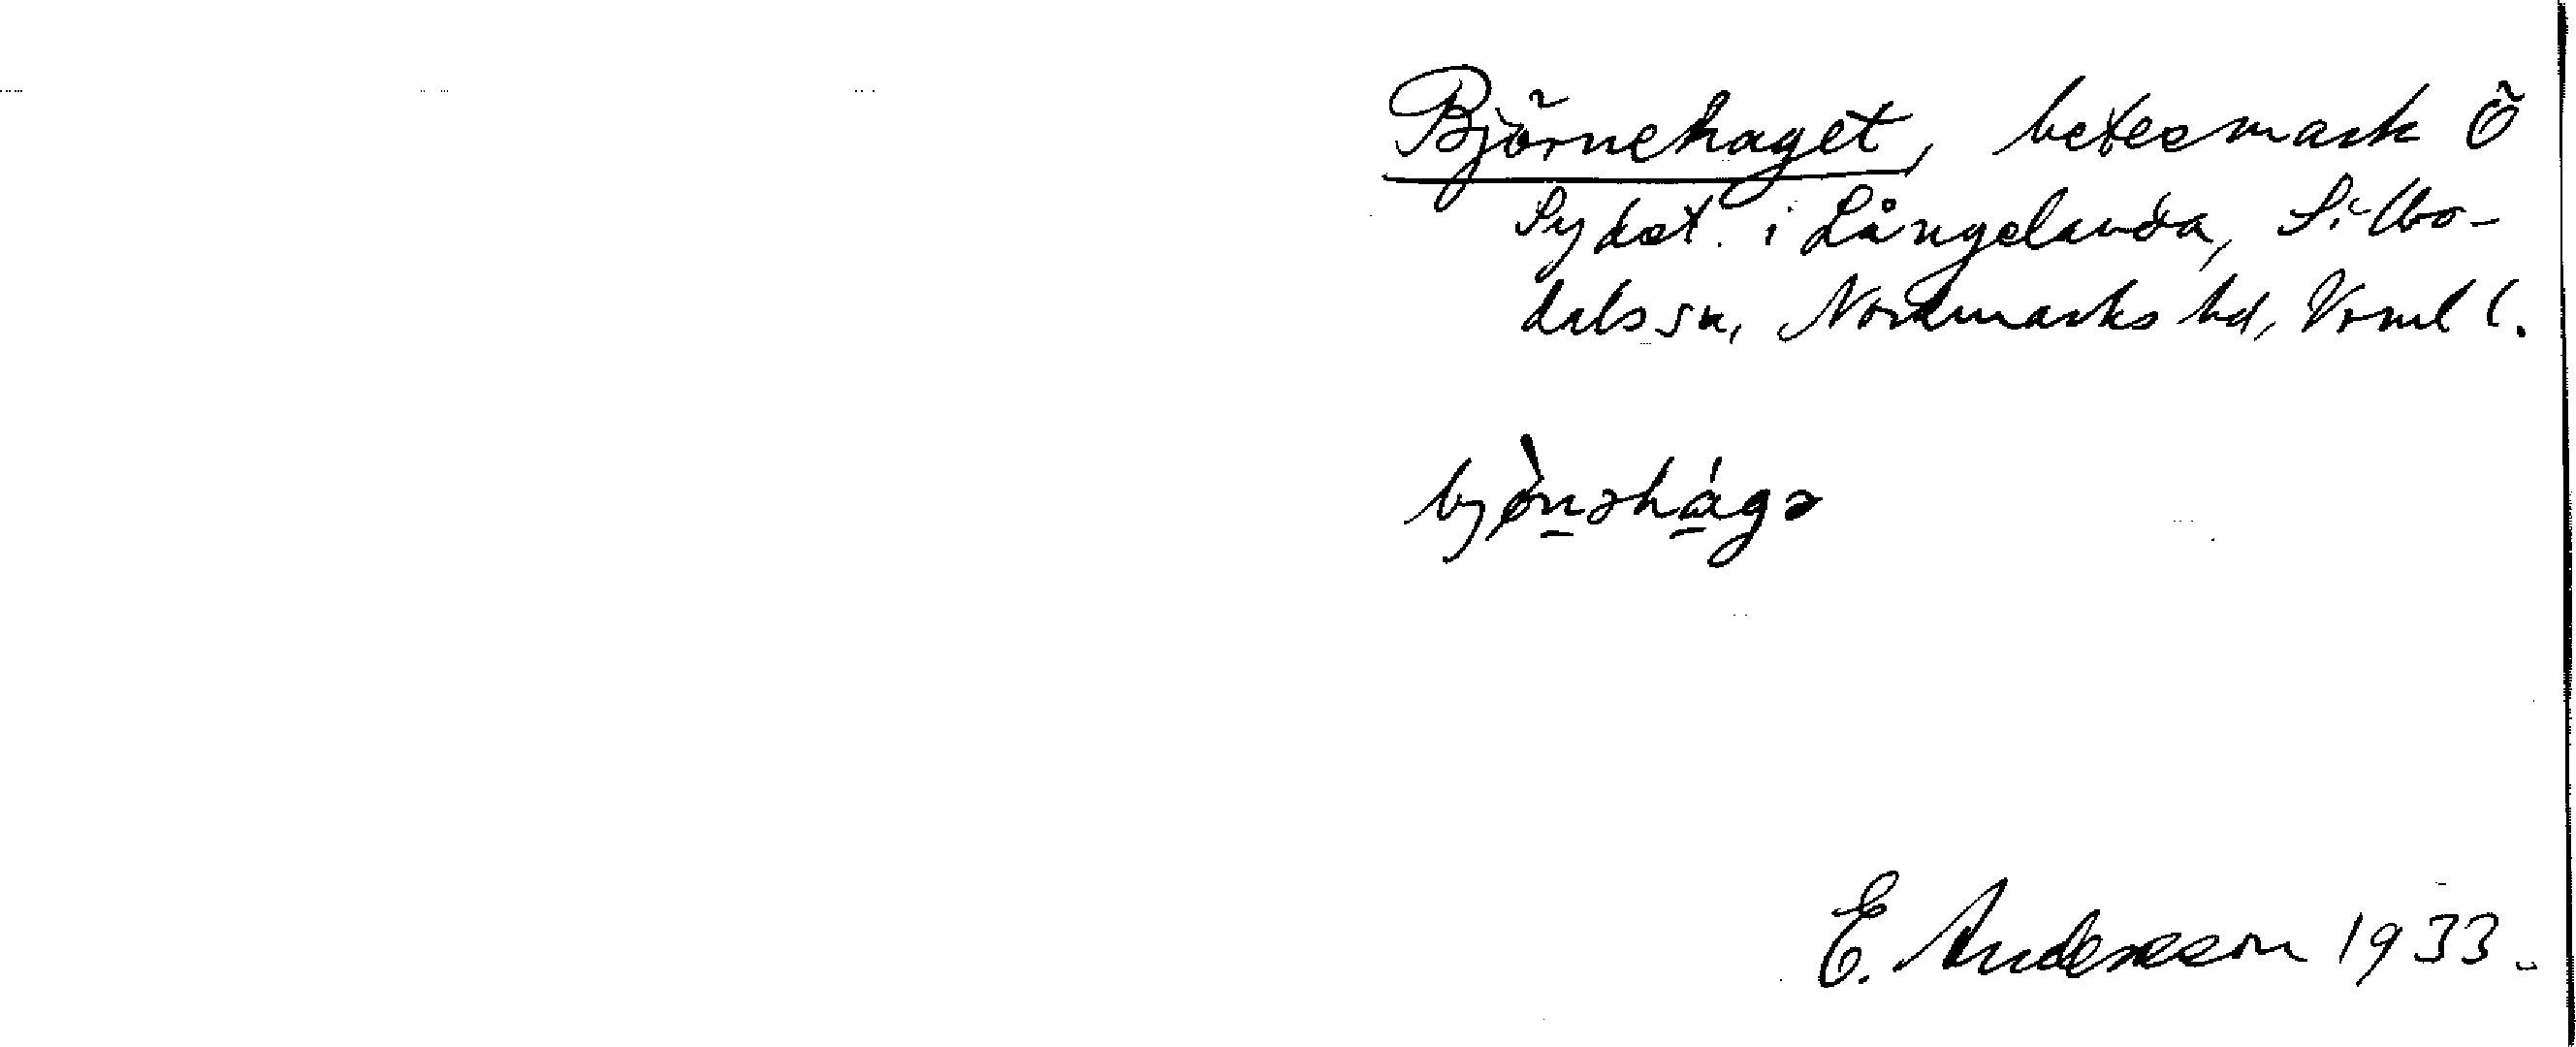 Björnehaget, betesmark Ö
Sydöst. i Långelanda, Sillbo-
dals sn, Nordmarks hd, Vrml l.
bjø̀nəhágə
E. Andersson 1933.